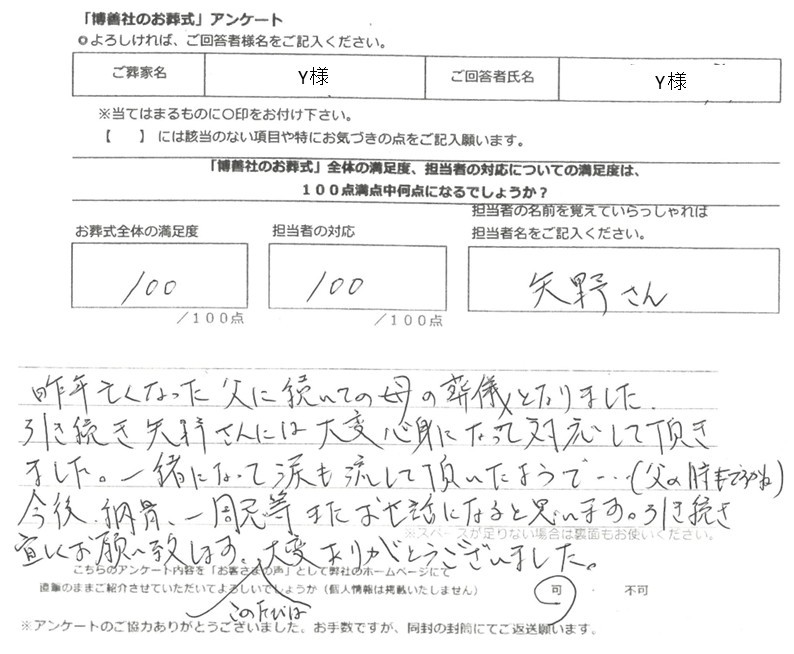 「博善社のお葬式」アンケート
◎よろしければ、ご回答者様名をご記入ください。
ご葬家名 Y様 ご回答者氏名 Y様
※当てはまるものに○印をお付け下さい。
【 】には該当のない項目や特にお気づきの点をご記入願います。
「博善社のお葬式」全体の満足度、担当者の対応についての満足度は、
100点満点中何点になるでしょうか？
担当者の名前を覚えていらっしゃれば
お葬式全体の満足度 担当者の対応 担当者名をご記入ください。
100 100 矢野さん
／100点 ／100点
昨年亡くなった父に続いての母の葬儀となりました。
引き続き矢野さんには大変心身になって対応して頂き
ました。一緒になって涙も流して頂いたようで…(父の時も
今後、納骨、一周忌等またお世話になると思います。引き続き
※スペースが足りない場合は裏面もお使いください。
宜しくお願い致します。大変ありがとうございました。
このたびは
こちらのアンケート内容を「お客さまの声」として弊社のホームページにて
直筆のままご紹介させていただいてよろしいでしょうか（個人情報は掲載いたしません） 可 ・ 不可
※アンケートのご協力ありがとうございました。お手数ですが、同封の封筒にてご返送願います。